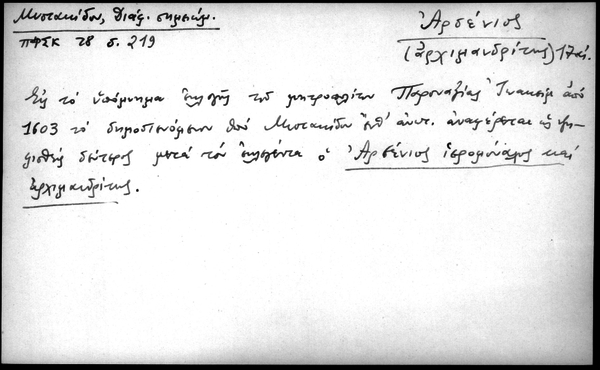 Μυστακίδου, Διάφ. σημειώμ.
ΠΦΣΚ 28 σ. 219
Ἀρσένιος
(ἀρχιμανδρίτης) 17 αἰ.
Εἰς τό ὑπόμνημα ἐκλογῆς τοῦ μητροπολίτου Παροναξίας Ἰωακείμ ἀπό
1603 τό δημοσιευόμενον ὑπό Μυστακίδου ἔνθ' ἀνωτ. ἀναφέρεται ὡς ψη-
φισθείς δεύτερος μετά τόν ἐκλεγέντα ὁ Ἀρσένιος ἱερομόναχος καί
ἀρχιμανδρίτης.